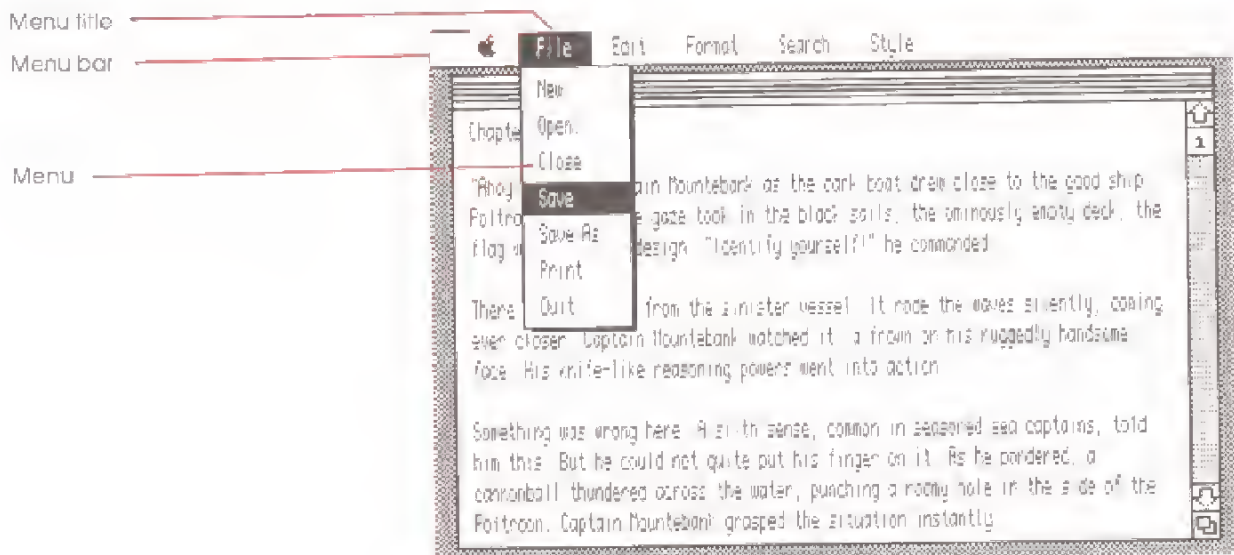 Menu title
Menu bar
Menu
File Edit Format Search Style
New
Open
Close
Save
Save As
Print
Quit
Chapte
1
"Ahoy ain Mountebank as the dark boat drew close to the good ship
Poltro e gaze took in the black sails, the ominously empty deck, the
flag design. "Identify yourself!" he commanded
There from the sinister vessel. It rode the waves silently, coming
ever closer. Captain Mountebank watched it a frown on his ruggedly handsome
face. His knife-like reasoning powers went into action
Something was wrong here. A sixth sense, common in seasoned sea captains, told
him this. But he could not quite put his finger on it. As he pondered, a
cannonball thundered across the water, punching a roomy hole in the side of the
Poltroon. Captain Mountebank grasped the situation instantly